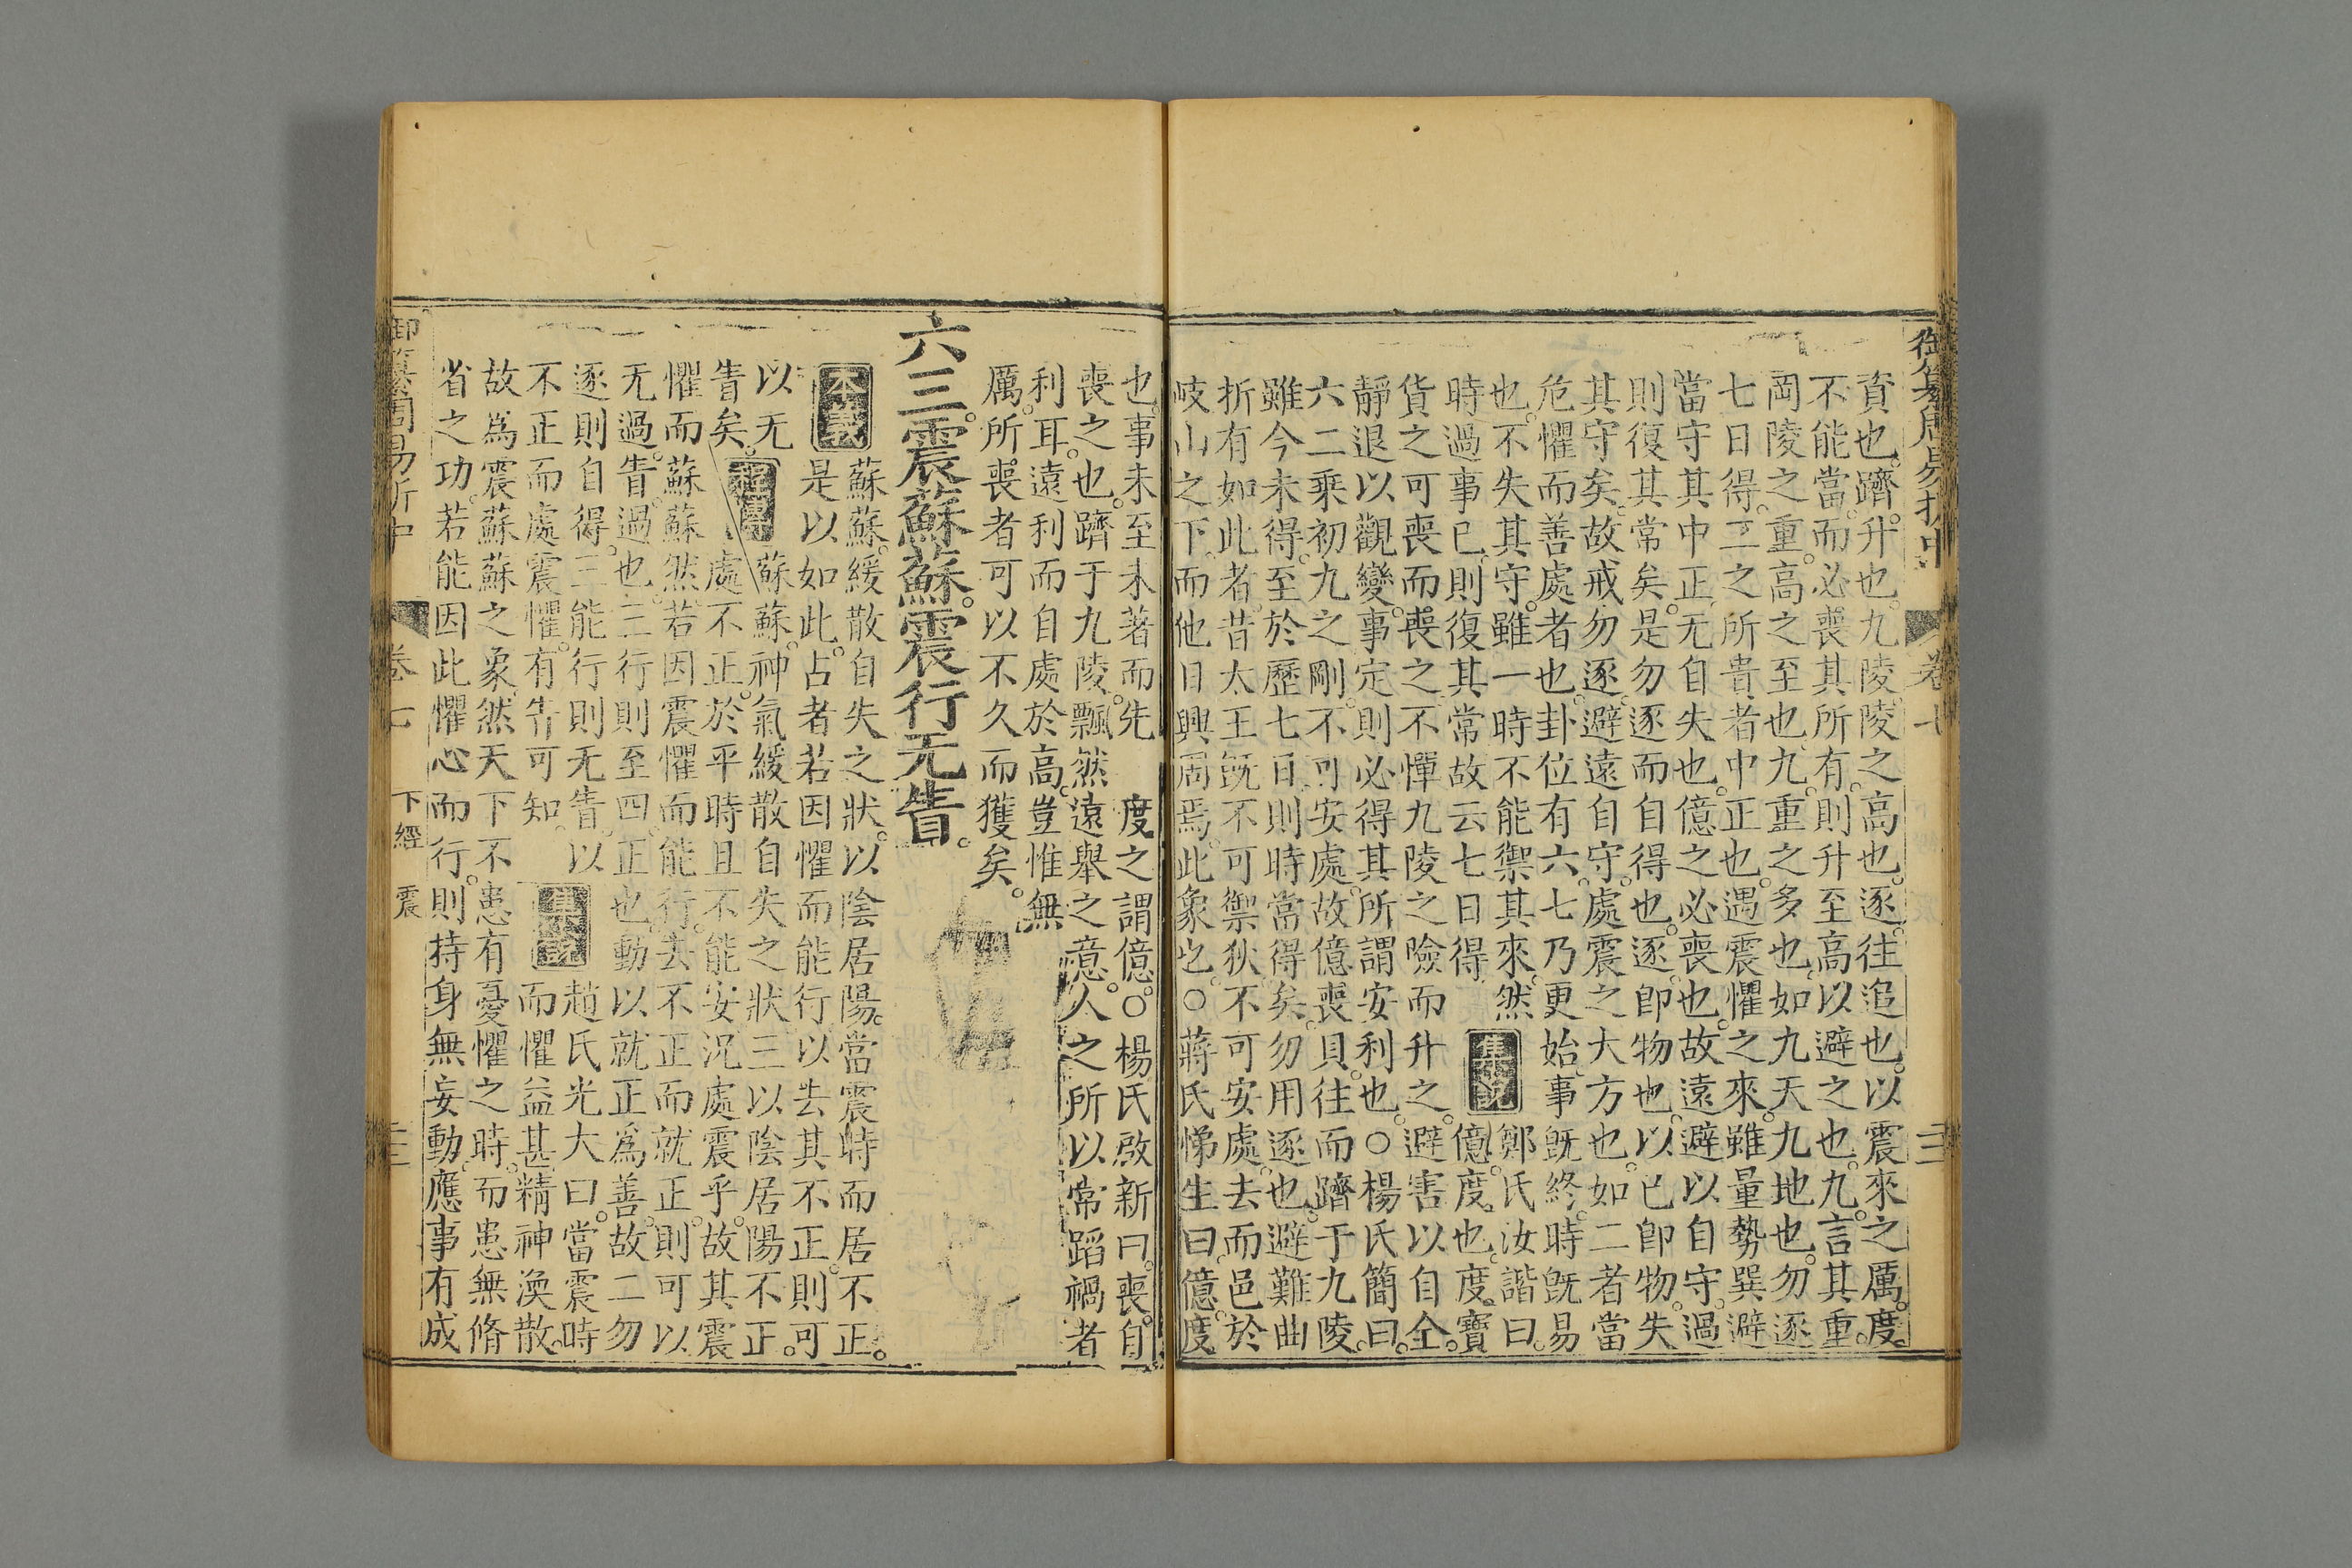 御纂周易折中 卷七 三
資也。躋。升也。九陵。陵之高也。逐。往追也。以震來之厲。度
不能當。而必喪其所有。則升至高以避之也。九。言其重。
岡陵之重。高之至也。九。重之多也。如九天九地也。勿逐
七日得。二之所貴者。中正也。遇震懼之來。雖量勢巽避
當守其中正。无自失也。億之必喪也。故遠避以自守。過
則復其常矣。是勿逐而自得也。逐。卽物也。以已卽物。失
其守矣。故戒勿逐。避遠自守。處震之大方也。如二者當
危懼而善處者也。卦位有六。七乃更始。事旣終。時旣易
也。不失其守。雖一時不能禦其來。然
時過事已。則復其常。故云七日得。
集說
鄭氏汝諧曰。
億。度也。度。寶
貨之可喪而喪之。不憚九陵之險而升之。避害以自全。
靜退以觀變。事定則必得其所謂安利也。○楊氏簡曰。
六二乘初九之剛。不可安處。故億喪貝。往而躋于九陵。
雖今未得。至於歷七日。則時當得矣。勿用逐也。避難曲
折有如此者。昔太王旣不可禦狄。不可安處。去而邑於
岐山之下。而他日興周焉。此象也。○蔣氏悌生曰。億。度
也。事未至未著而。先
度之謂億。○楊氏啟新曰。喪。自
喪之也。躋于九陵。飄然遠舉之意。人之所以常蹈禍者
利耳。遠利而自處於高。豈惟無
厲。所喪者可以不久而獲矣。
六三。震蘇蘇。震行无眚。
本義
蘇蘇。緩散自失之狀。以陰居陽。當震時而居不正。
是以如此。占者若因懼而能行。以去其不正。則可
以无
眚矣。
程傳
蘇蘇。神氣緩散自失之狀。三以陰居陽不正。
處不正。於平時且不能安。況處震乎。故其震
懼而蘇蘇然。若因震懼而能行。去不正而就正。則可以
无過。眚。過也。三行則至四。正也。動以就正爲善。故二勿
逐則自得。三能行則无眚。以
不正而處震懼。有眚可知。
集說
趙氏光大曰。當震時
而懼益甚。精神渙散。
故爲震蘇蘇之象。然天下不患有憂懼之時。而患無脩
省之功。若能因此懼心而行。則持身無妄動。應事有成
御纂周易折中 卷七 下經 震 三